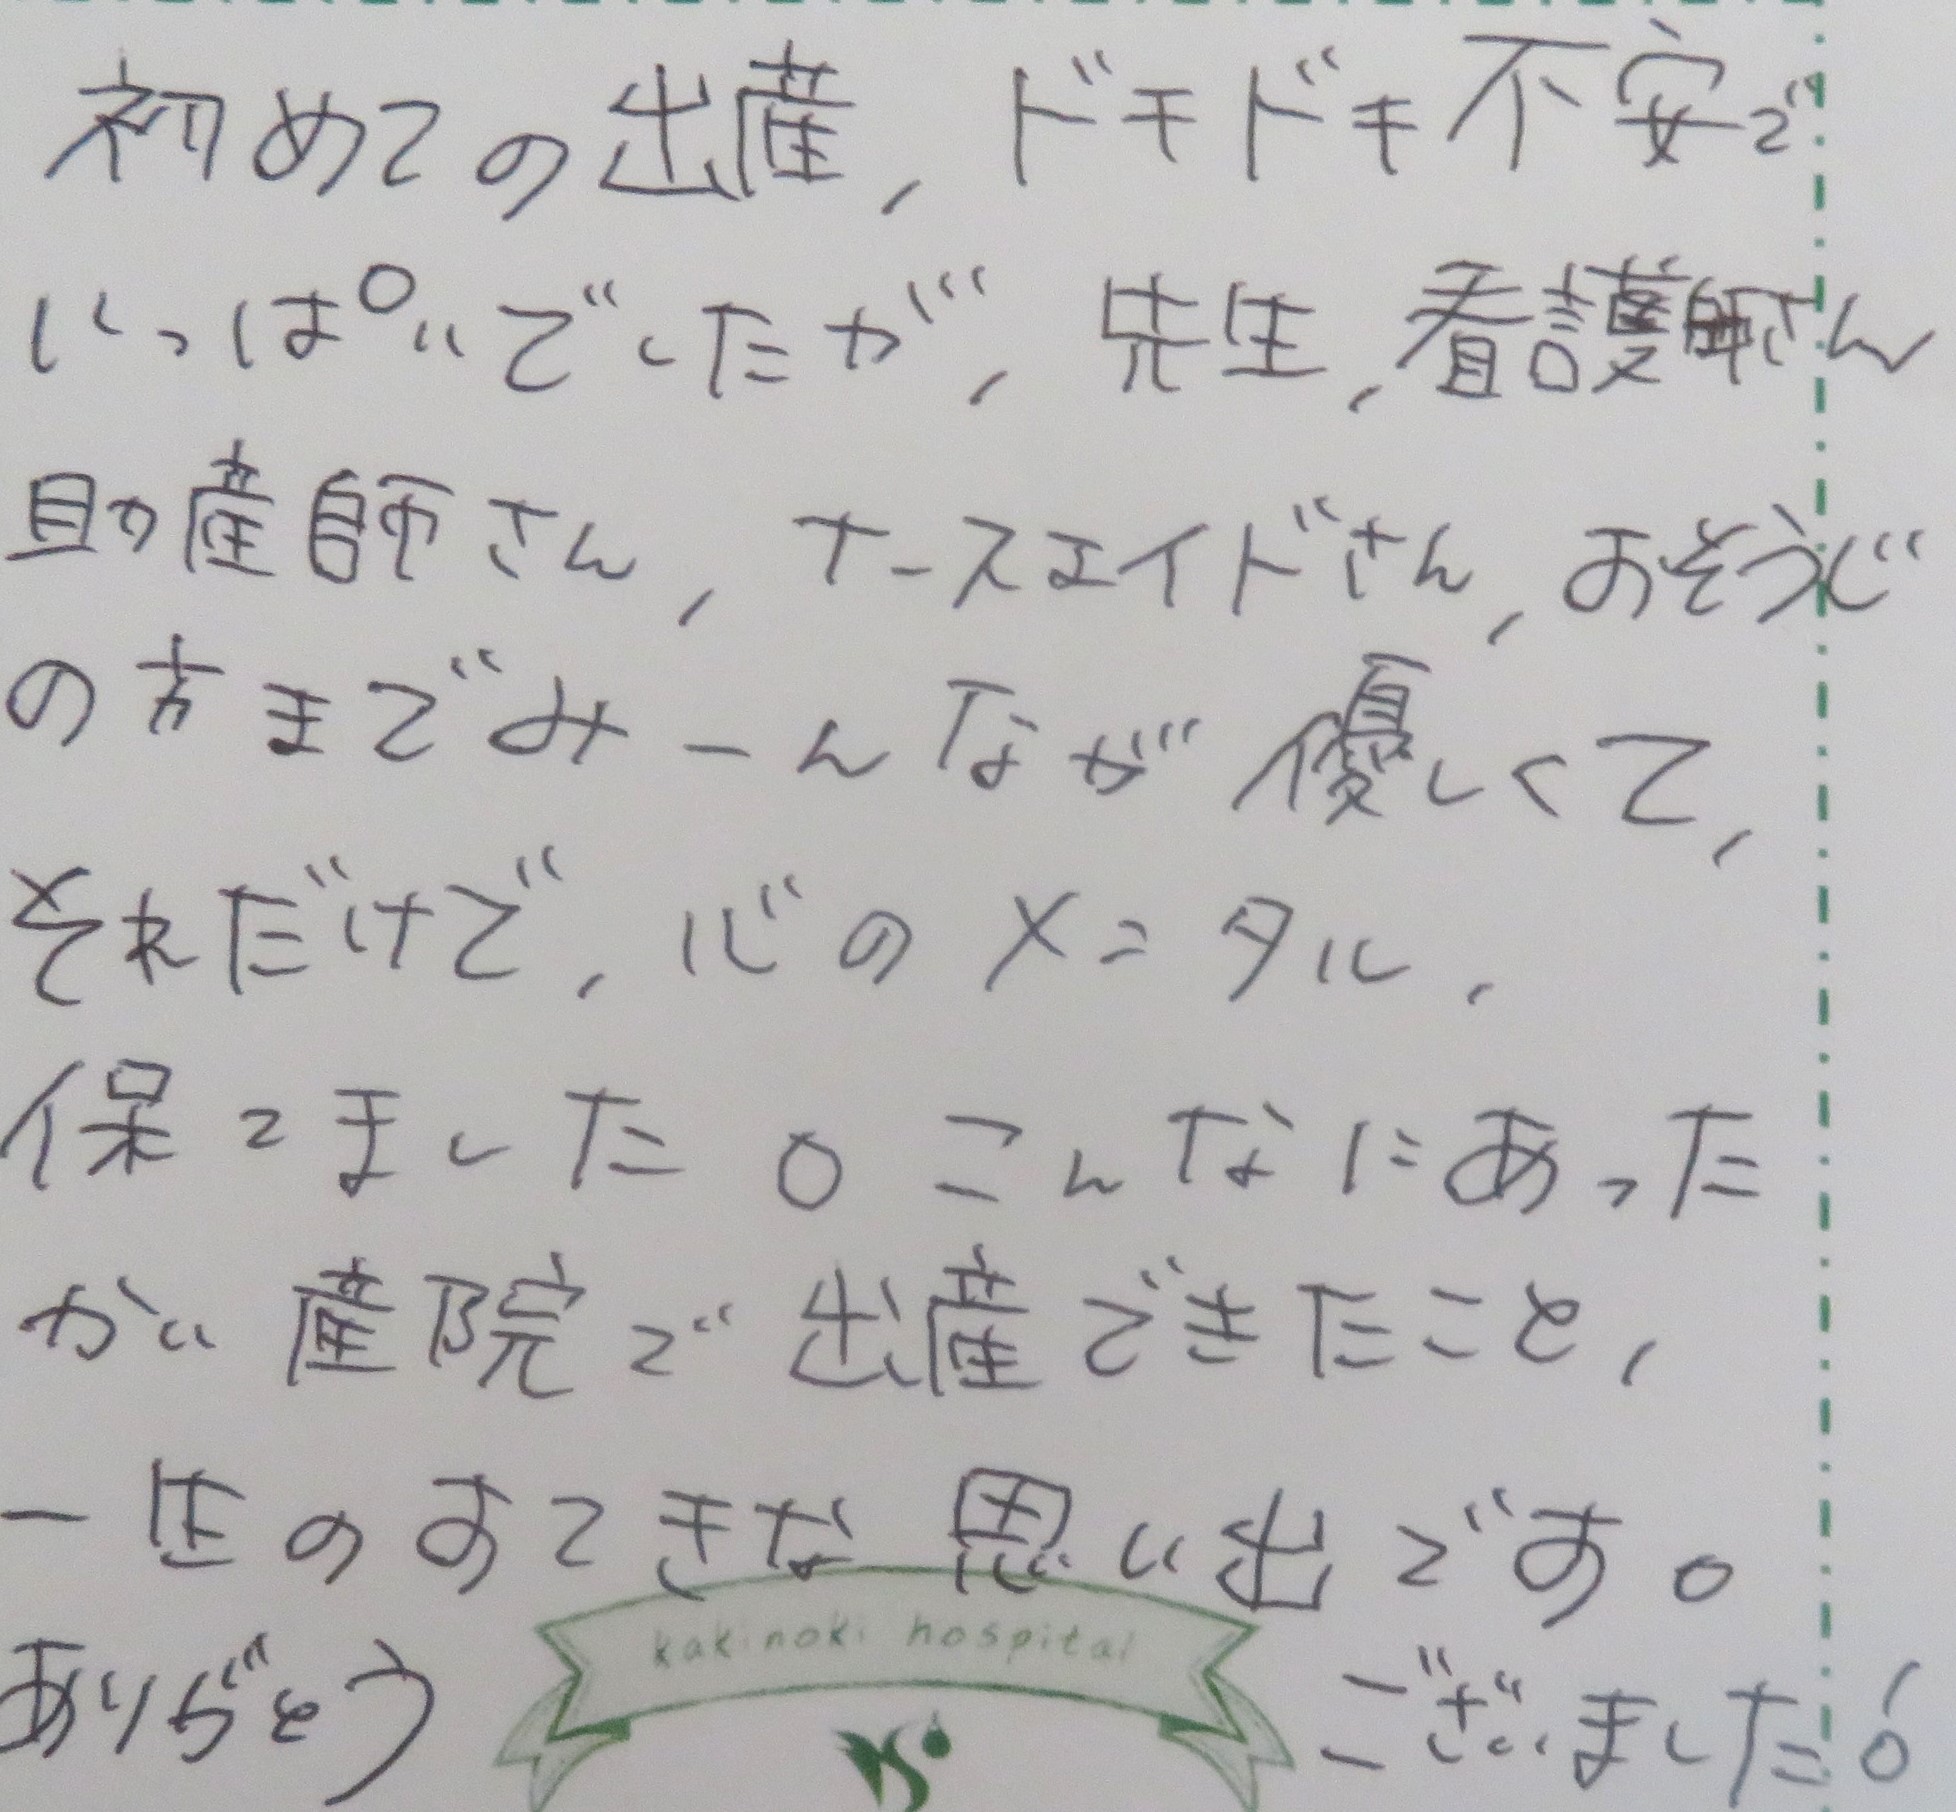 初めての出産、ドキドキ不安で
いっぱいでしたが、先生、看護師さん
助産師さん、ナースエイドさん、おそうじ
の方までみーんなが優しくて、
それだけで、心のメンタル、
保てました。こんなにあった
かい産院で出産できたこと、
一生のすてきな思い出です。
kakinoki hospital
ありがとうございました!